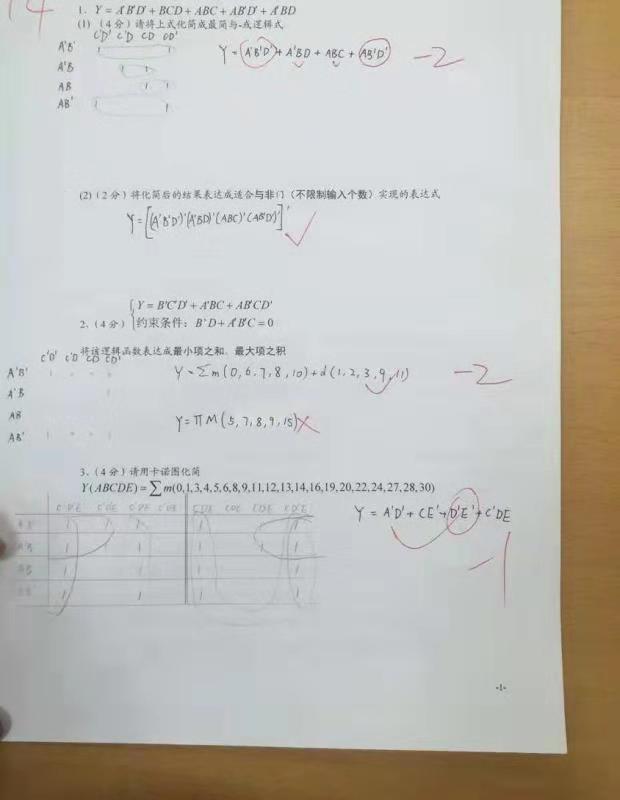 14
1、Y = A'B'D' + BCD + ABC + AB'D' + A'BD
(1) (4 分) 请将上式化简成最简与-或逻辑式
C'D' C'D CD CD'
A'B' 1 1
A'B 1 1
AB 1 1
AB' 1 1
Y = A'B'D' + A'BD + ABC + AB'D' -2
(2) (2 分) 将化简后的结果表达成适合与非门（不限制输入个数）实现的表达式
Y = [(A'B'D')'(A'BD)'(ABC)'(AB'D')']'
Y = B'C'D' + A'BC + AB'CD'
2、(4 分) 约束条件：B'D + A'B'C = 0
将该逻辑函数表达成最小项之和、最大项之积
C'D' C'D CD CD'
A'B'
A'B
AB
AB'
Y = Σm(0, 6, 7, 8, 10) + d(1, 2, 3, 9, 11) -2
Y = πM(5, 7, 8, 9, 15)
3、(4 分) 请用卡诺图化简
Y(ABCDE) = ∑m(0,1,3,4,5,6,8,9,11,12,13,14,16,19,20,22,24,27,28,30)
Y = A'D' + CE' + D'E' + C'DE
-1
-1-